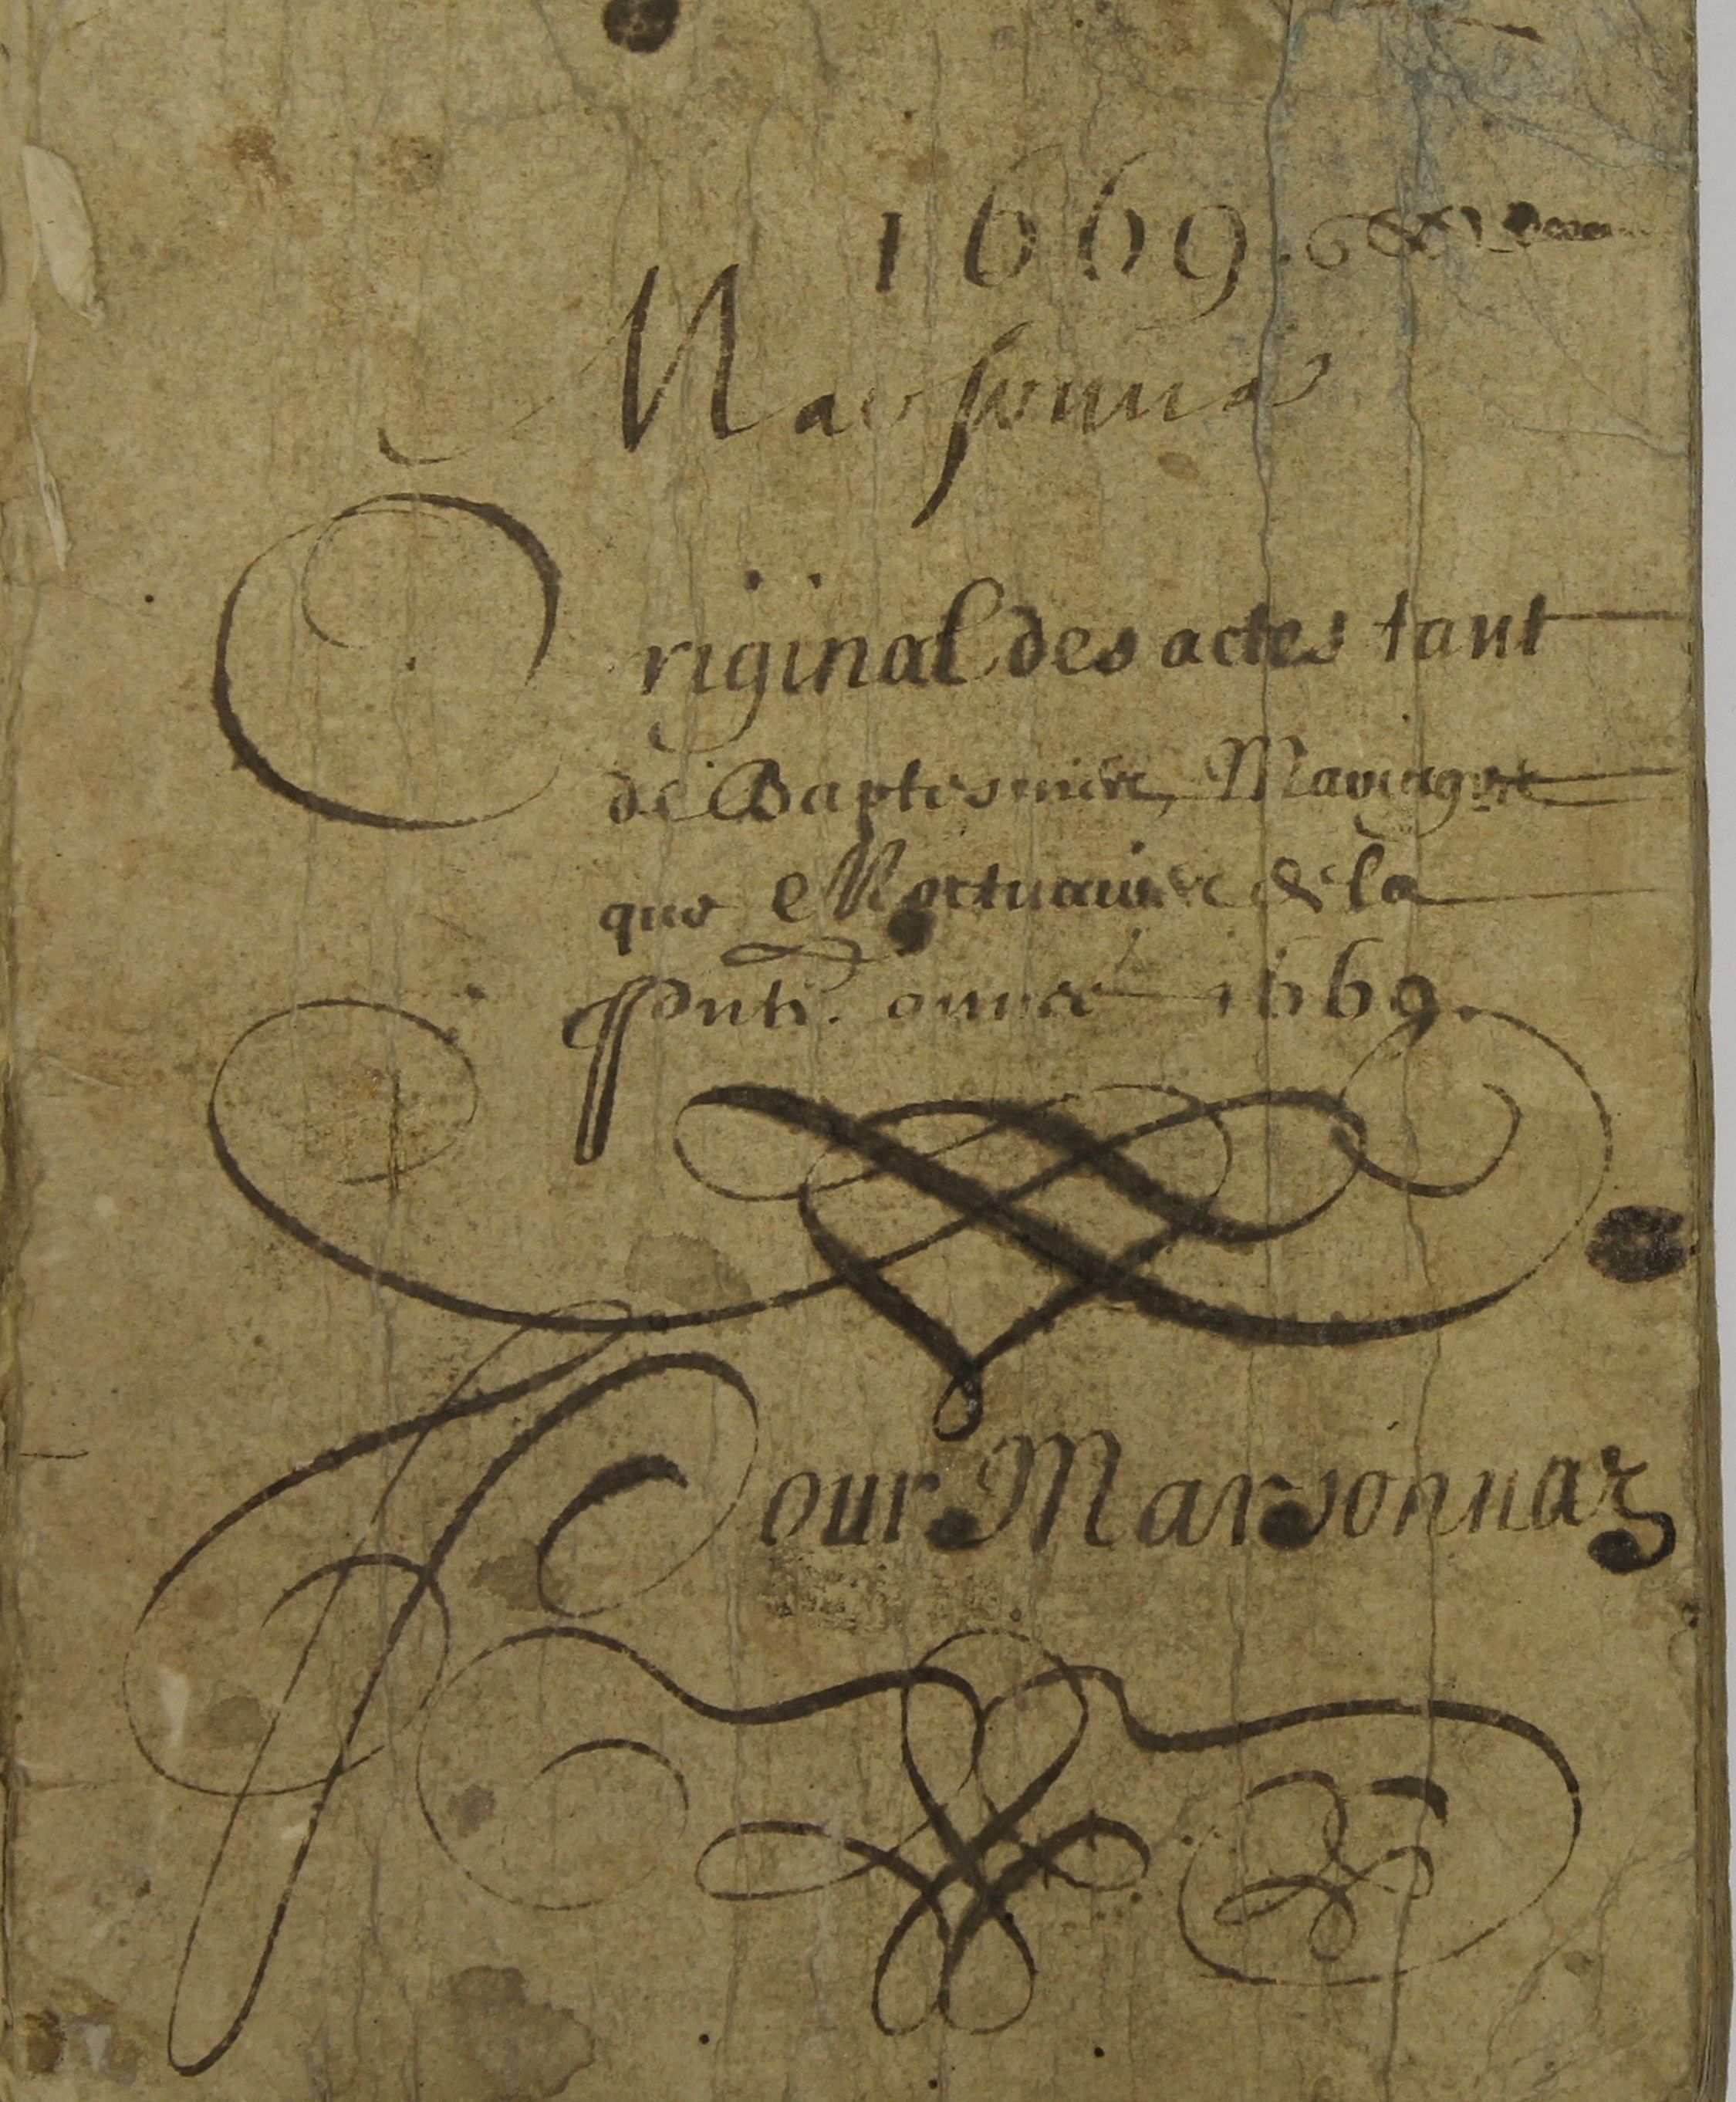 1669.
Marsonna
Original des actes tant
de Baptesmere, Mariages
que Mortuaire de la
pnte. annee 1669.
Pour Marsonnaz